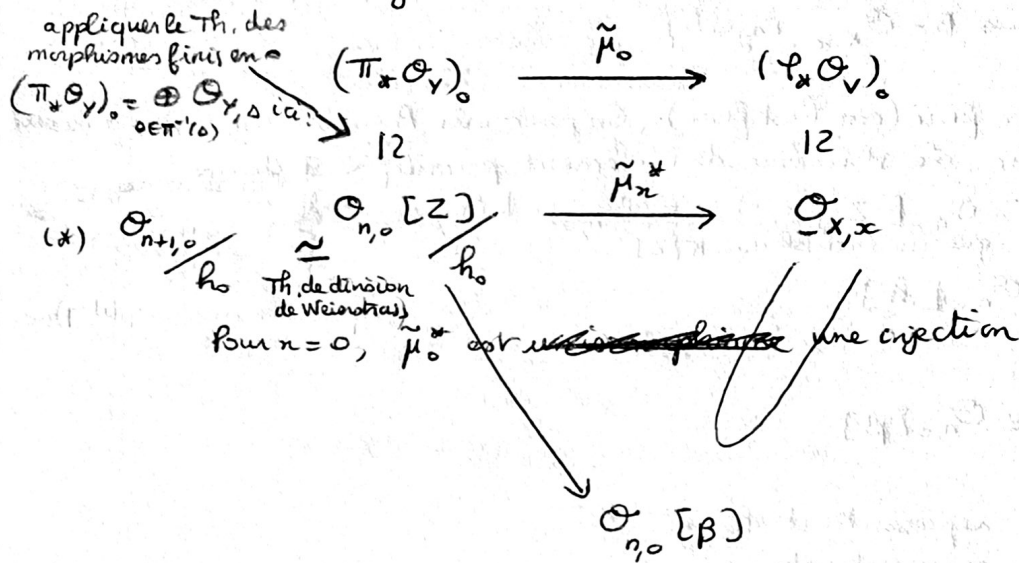 appliquer le Th. des
morphismes finis en 0
(π_* O_Y)_0 = ⊕ O_{Y,s} ici:
s∈π^{-1}(0)
(π_* O_Y)_0 → μ̃_0 → (φ_* O_V)_0
12 12
(*) O_{n+1,0}/h_0 ≃ O_{n,0}[Z]/h_0 → μ̃_x^* → O_{X,x}
Th. de division
de Weierstrass
Pour x=0, μ̃_0^* est une injection
O_{n,0}[β]